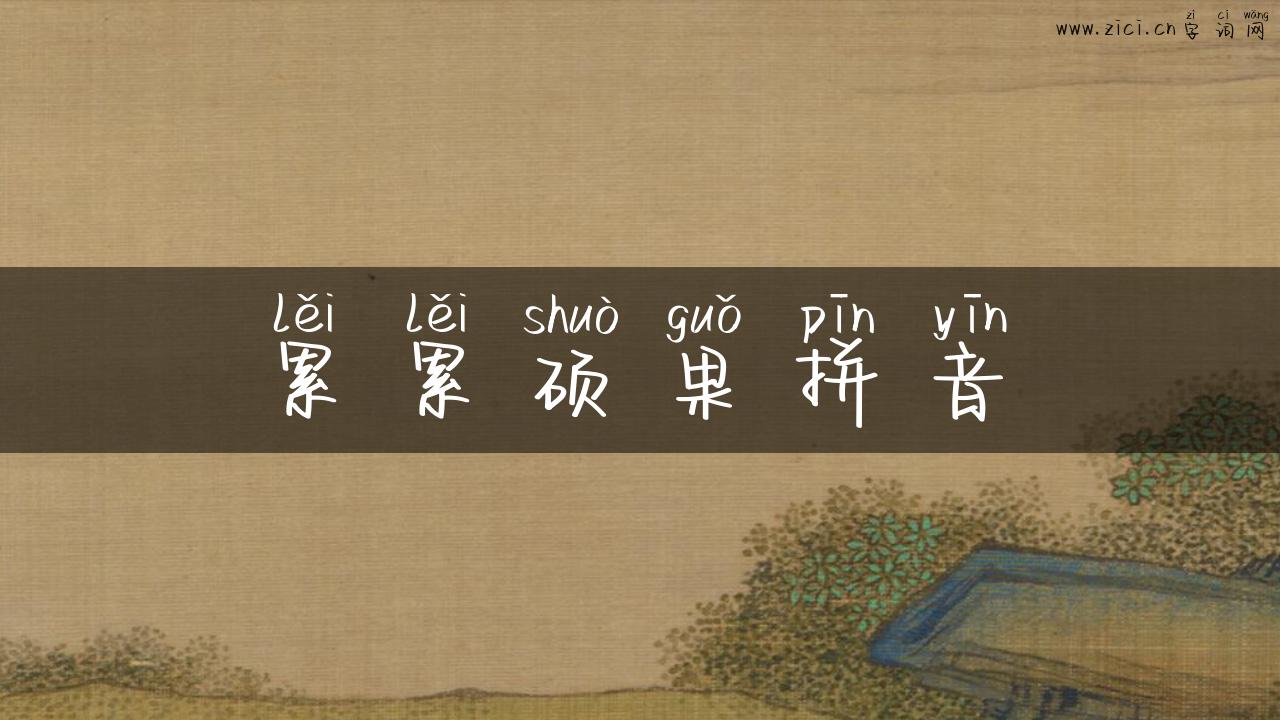 zì cí wǎng
www.zici.cn 字词网
lěi lěi shuò guǒ pīn yīn
累累硕果拼音